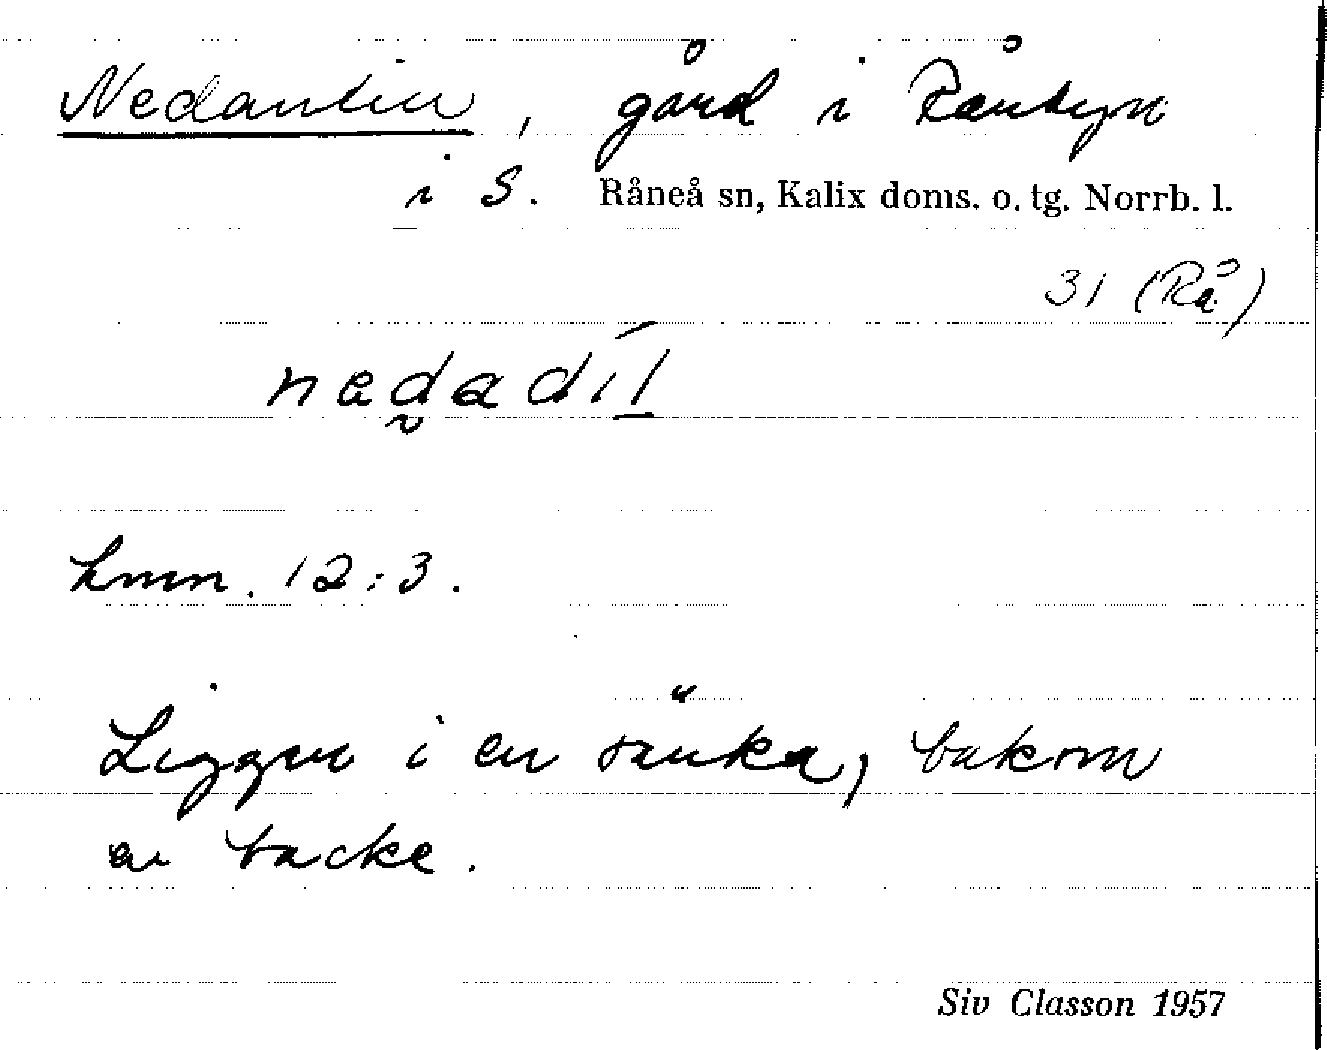 Nedantill, gård i Rånbyn
i S. Råneå sn, Kalix doms. o. tg. Norrb. l.
31 (Rå)
hmn. 12:3.
Ligger i en sänka, bakom
en backe.
Siv Classon 1957